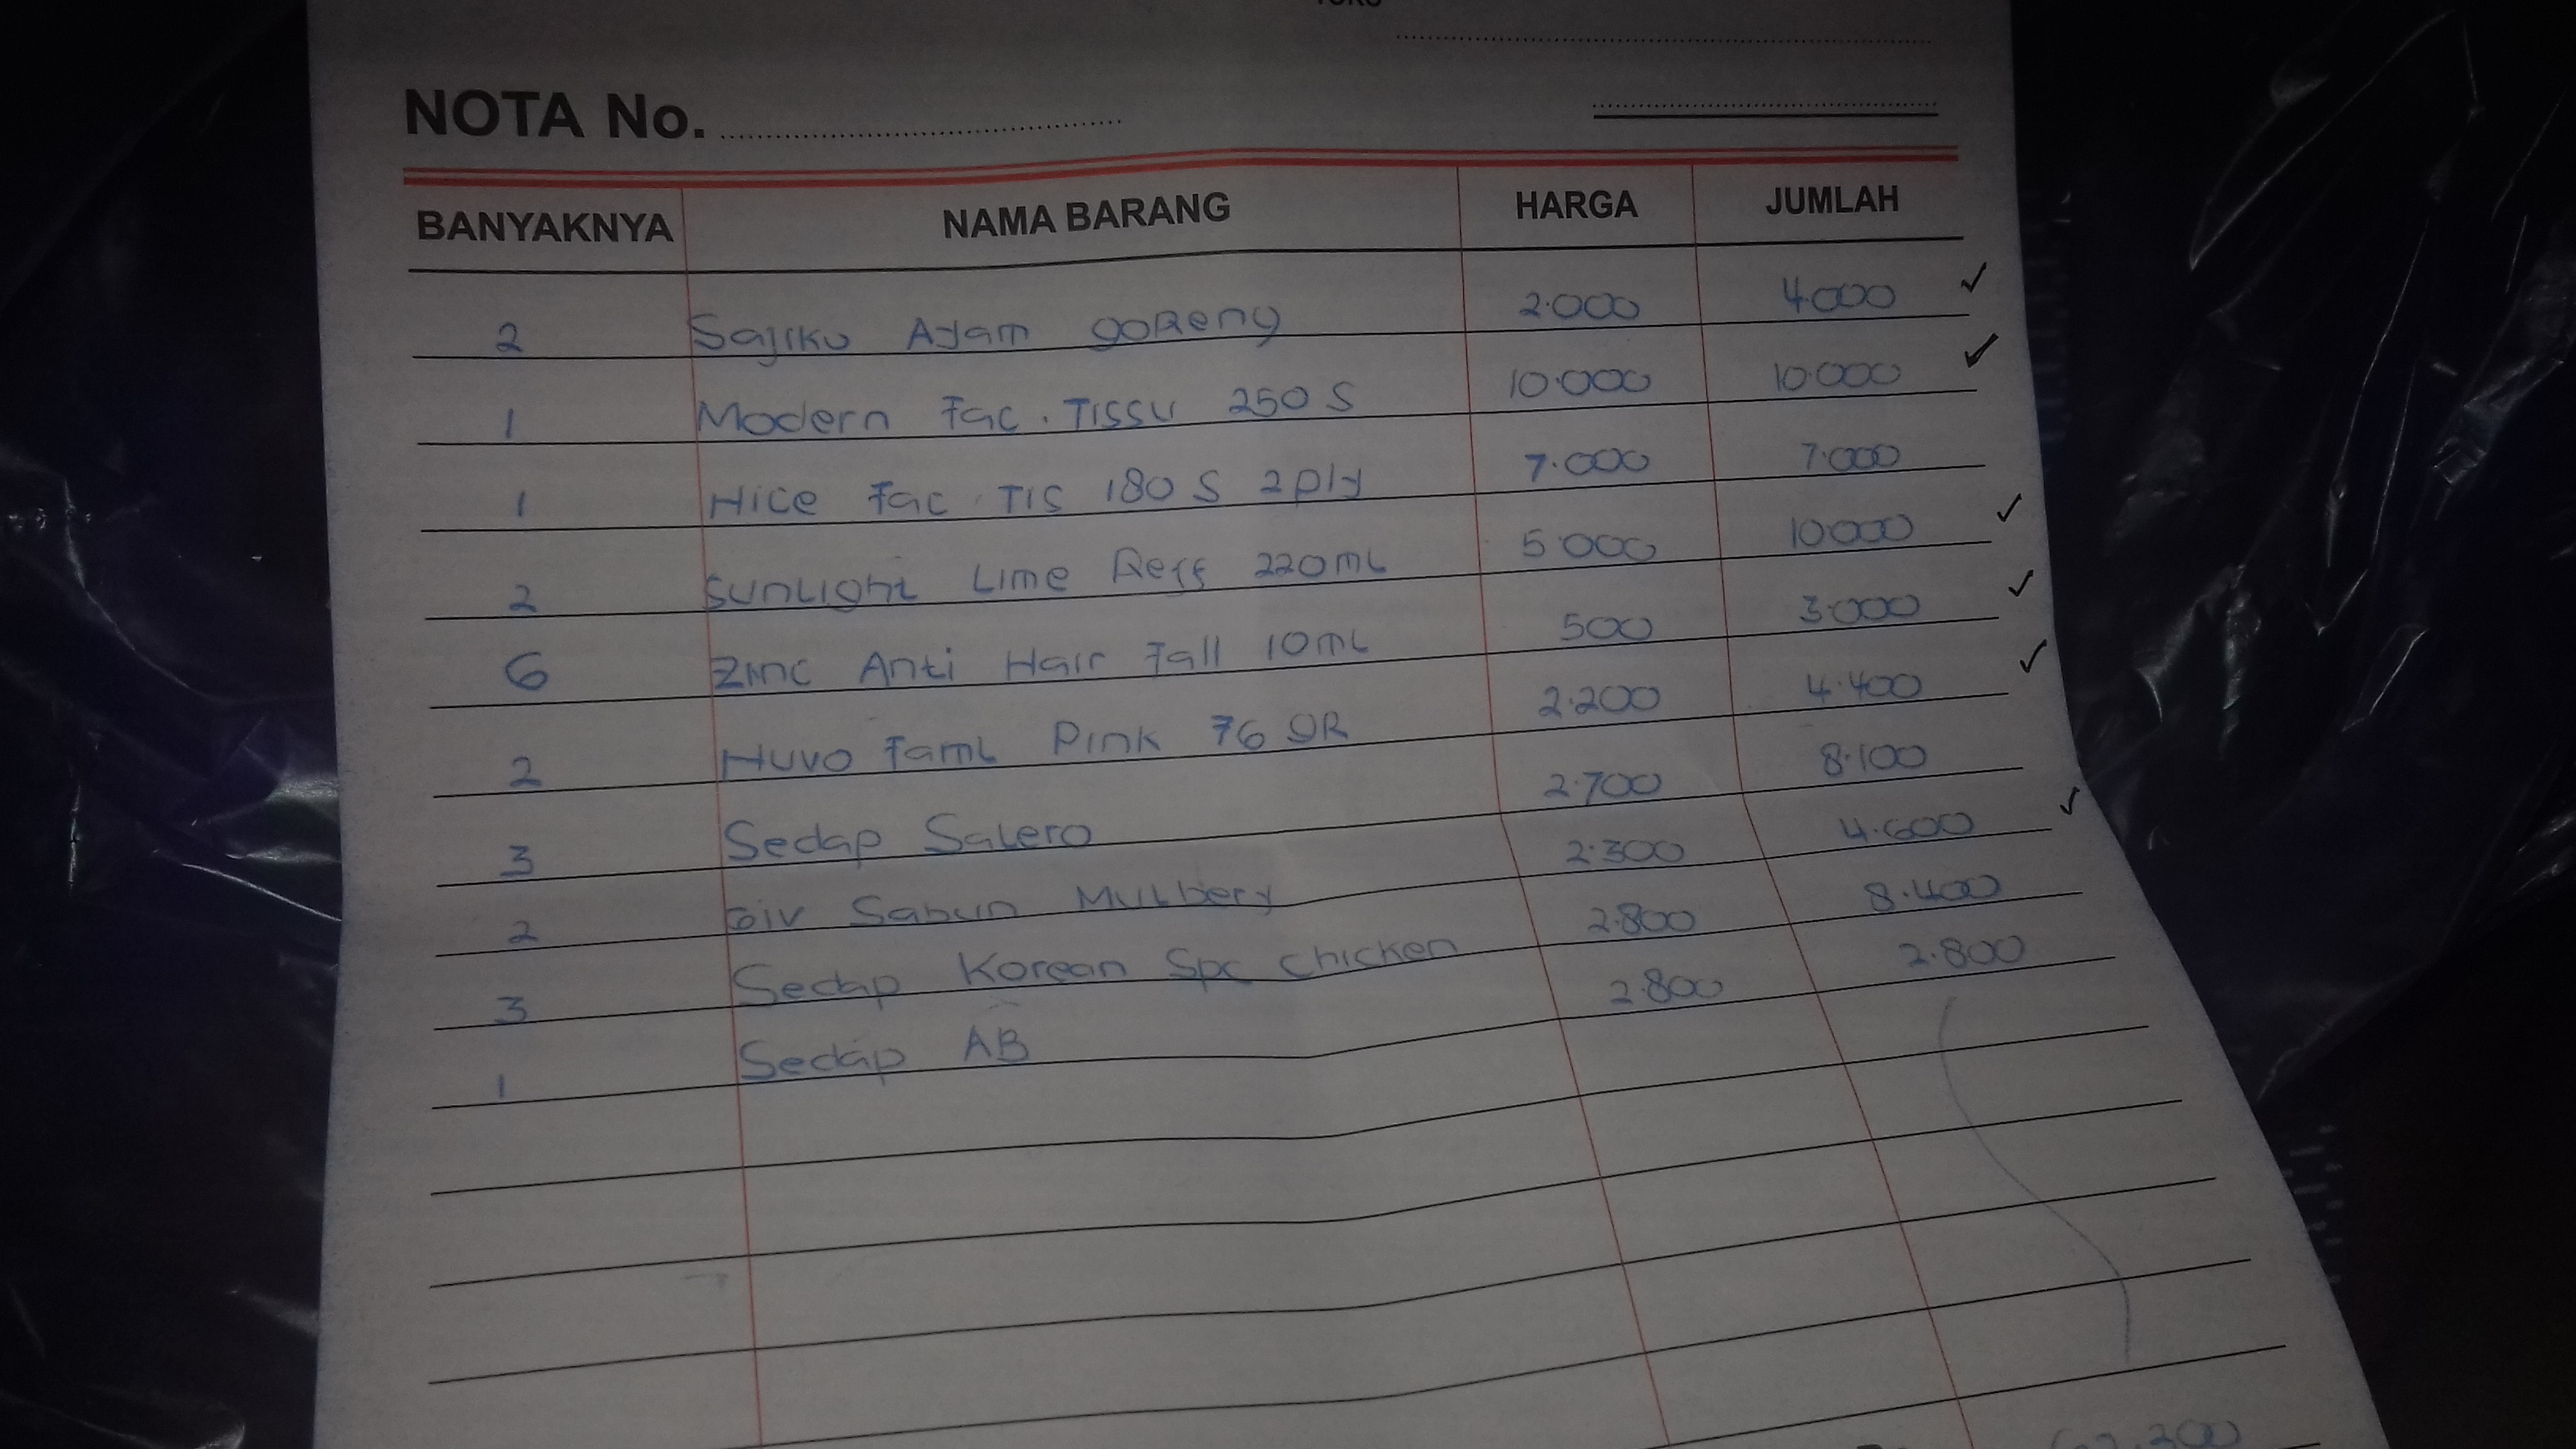 NOTA No.
BANYAKNYA NAMA BARANG HARGA JUMLAH
2 Sajiku Ayam goReng 2.000 4.000 ✓
1 Modern Fac. Tissu 250 S 10.000 10.000 ✓
1 Nice Fac. Tis 180 S 2 ply 7.000 7.000
2 SunLight Lime Reff 220 mL 5.000 10.000 ✓
6 Zinc Anti Hair Fall 10 mL 500 3.000 ✓
2 Nuvo FamL Pink 76 gR 2.200 4.400 ✓
3 Sedap SaLero 2.700 8.100
2 Giv Sabun MuLbery 2.300 4.600 ✓
3 Sedap Korean Spc Chicken 2.800 8.400
1 Sedap AB 2.800 2.800